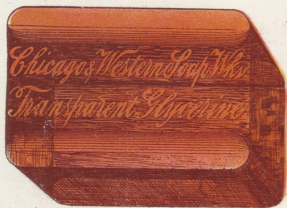 Chicago & Western Soap Wks.
Transparent Glycerine